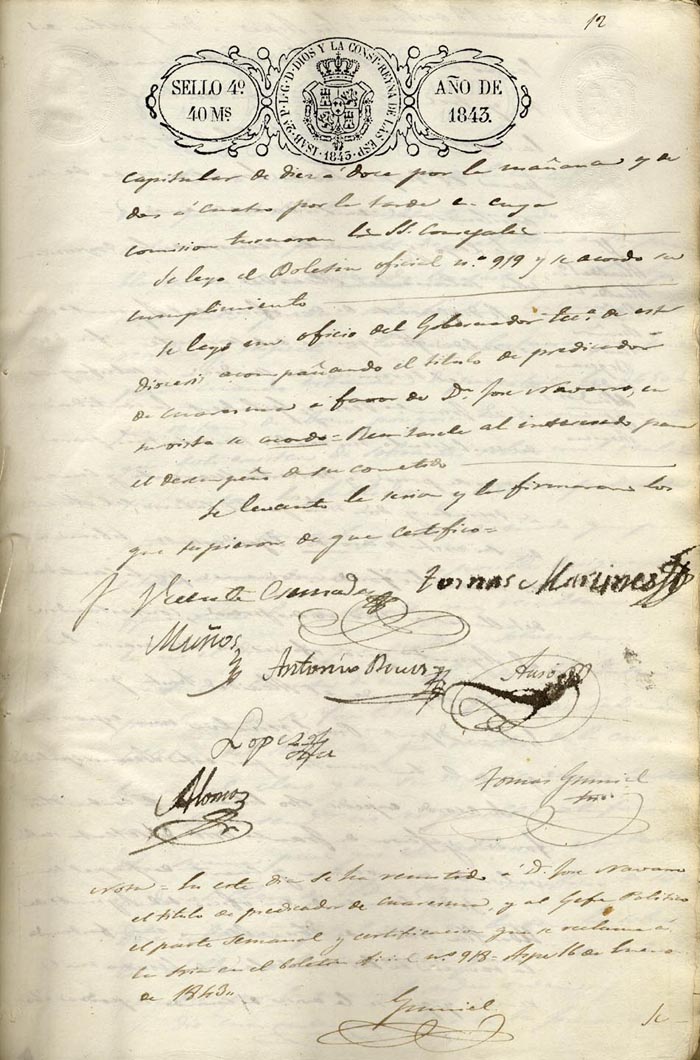 12
SELLO 4º
40 Ms
ISAB. 2ª P. L. G. D. DIOS Y LA CONST. REYNA DE LAS ESP.
1843.
AÑO DE
1843.
capitular de diez á doce por la mañana y de
dos á cuatro por la tarde en cuya
comision turnaran los SS. Concejales
Se leyo el Boletin oficial n.º 919 y se acordo su
cumplimiento
Se leyó un oficio del Gobernador Ecc.º de esta
diocesis acompañando el titulo de predicador
de cuaresma á favor de Dn. Jose Navarro, en
su vista se acordo = Remitasele al interesado para
el desempeño de su cometido
Se levanto la sesion y la firmaron los
que supieron de que certifico =
Vicente
Tomas Martinez
Muños
Antonio Ruiz
Lopez
Alonso
Tomas Gumiel
srio.
Nota = En este dia se ha remitido á D. Jose Navarro
el titulo de predicador de Cuaresma, y al Gefe Politico
el parte semanal y certificacion que se reclama á
en el boletin oficial n.º 918 = Aspe 16 de Enero
de 1843 =
Gumiel